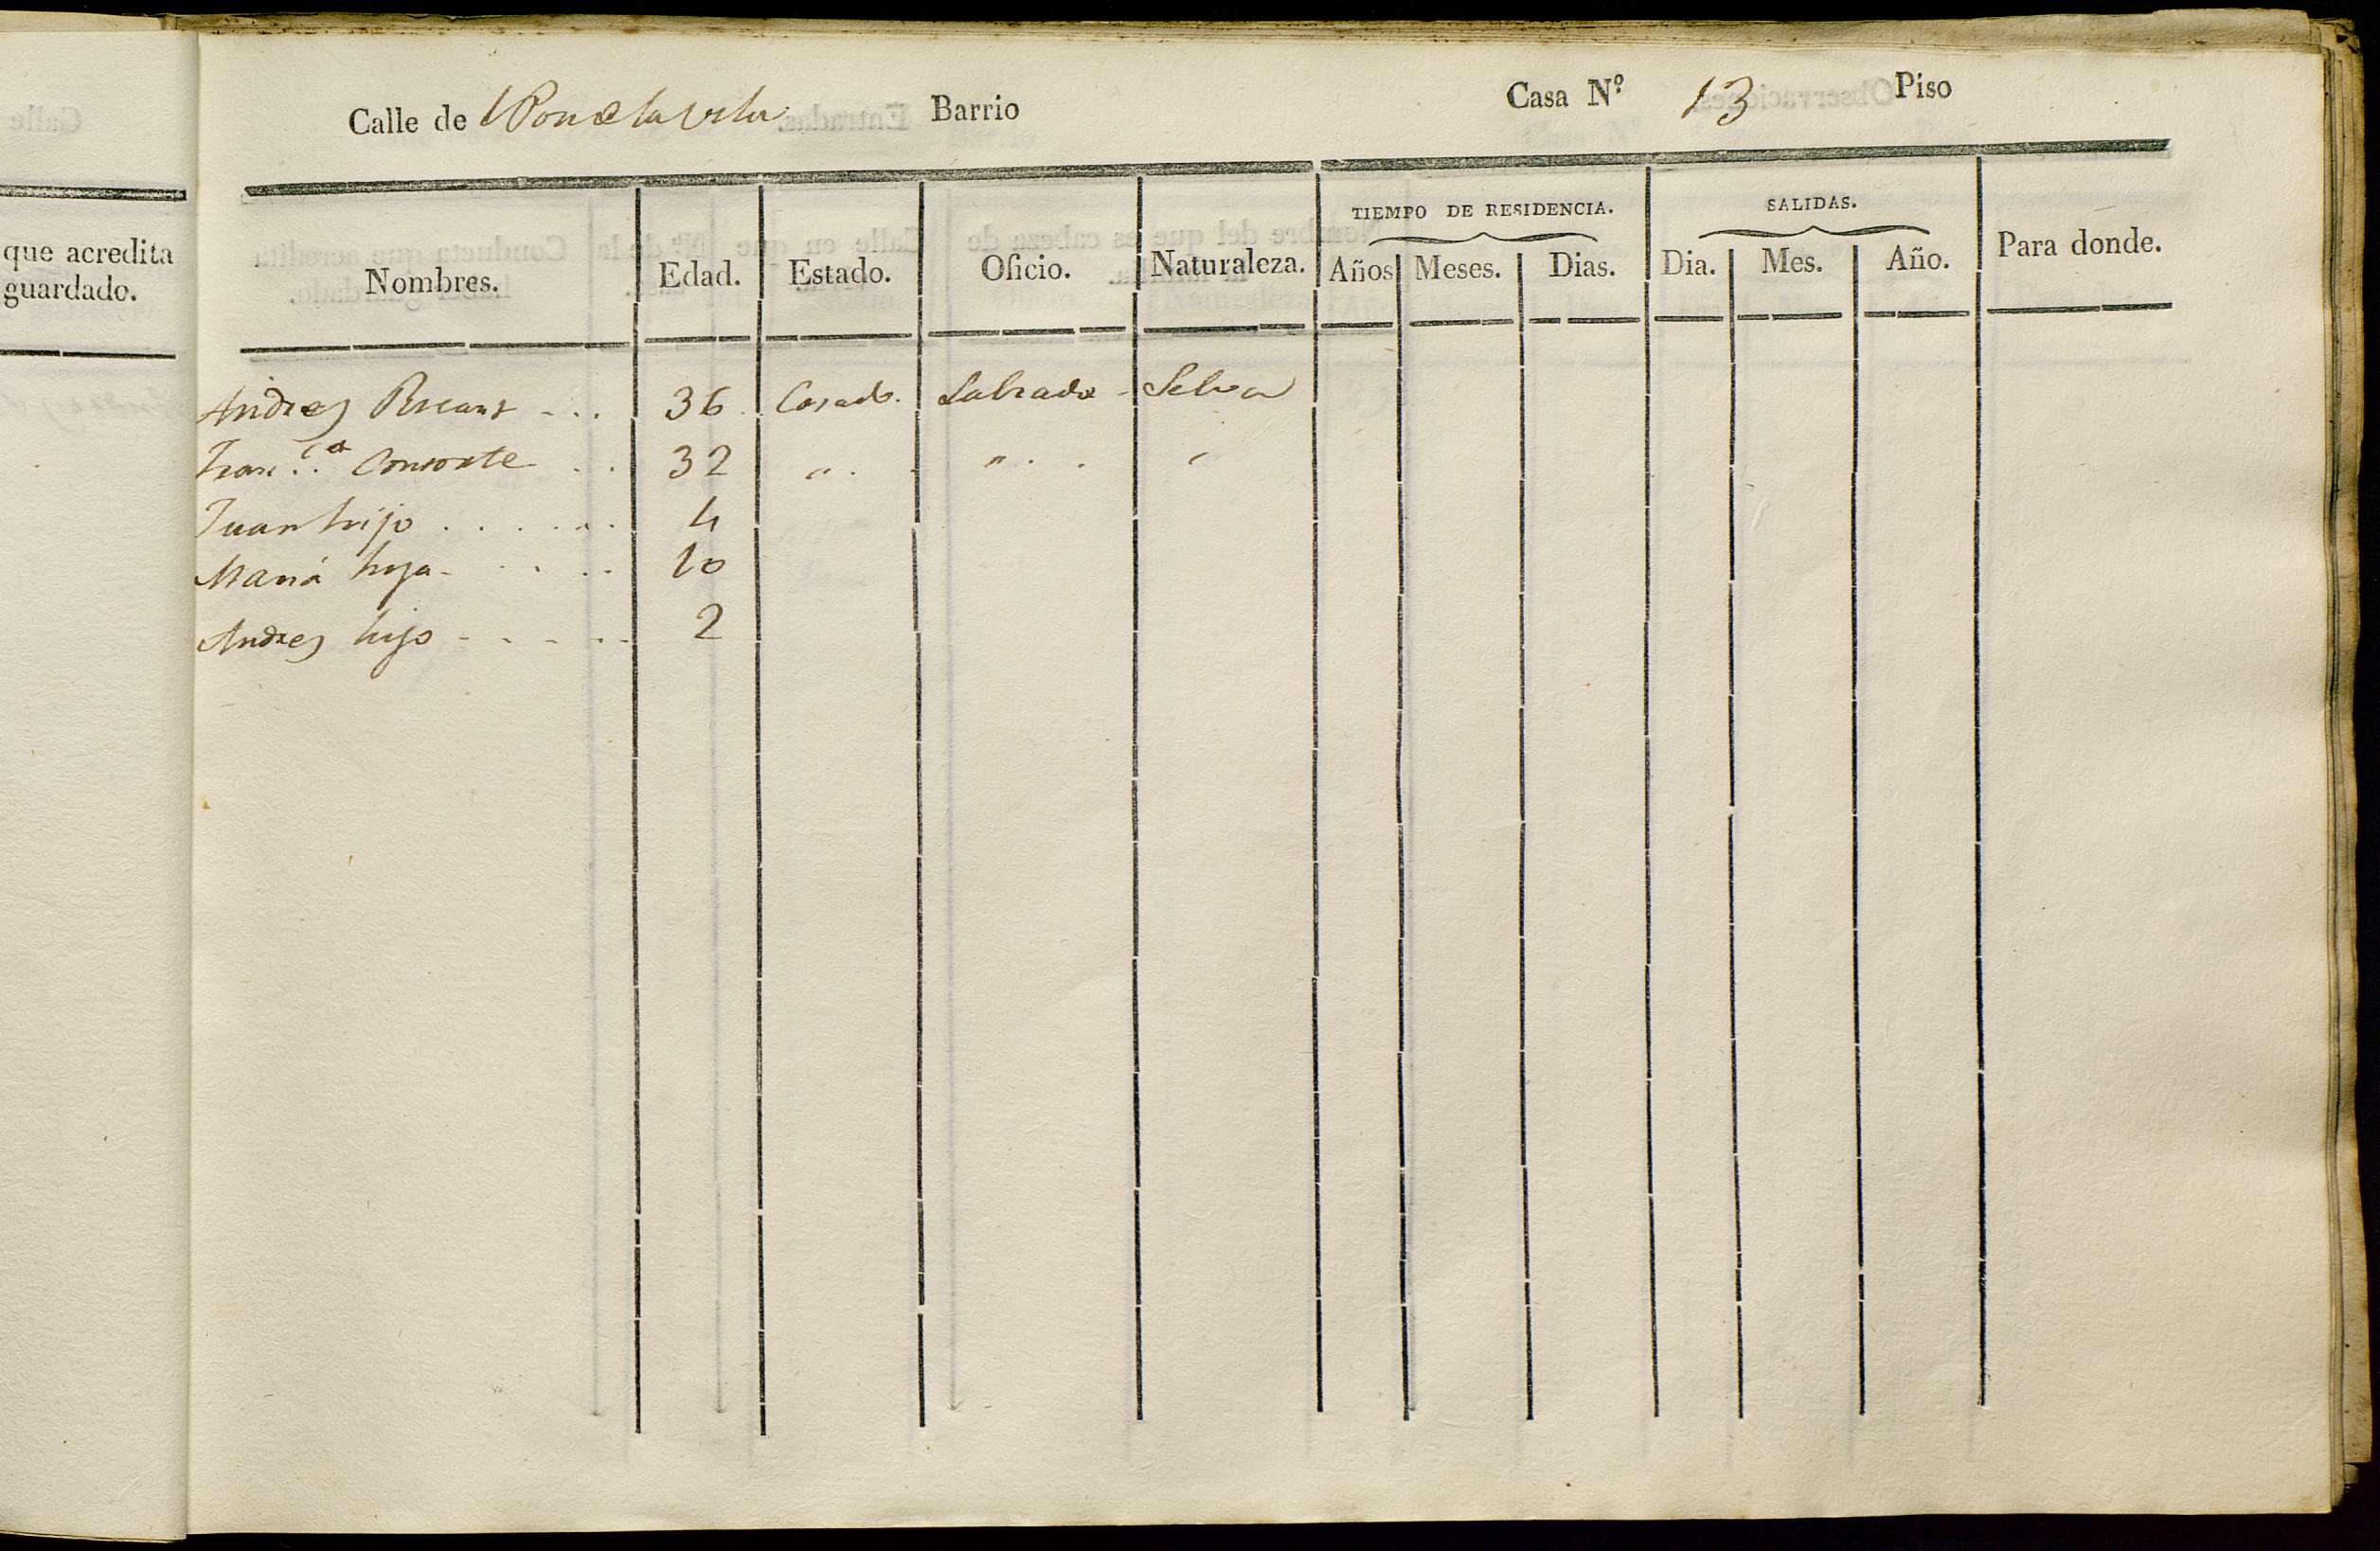 que acredita
guardado.
Calle de Barrio Casa Nº 13 Piso
TIEMPO DE RESIDENCIA. SALIDAS.
Nombres. Edad. Estado. Oficio. Naturaleza. Años Meses. Dias. Dia. Mes. Año. Para donde.
Andres 36 Casado. Labrador Selva
Franca Consorte 32 " " "
Juan hijo 4
Maria hija 10
Andres hijo 2